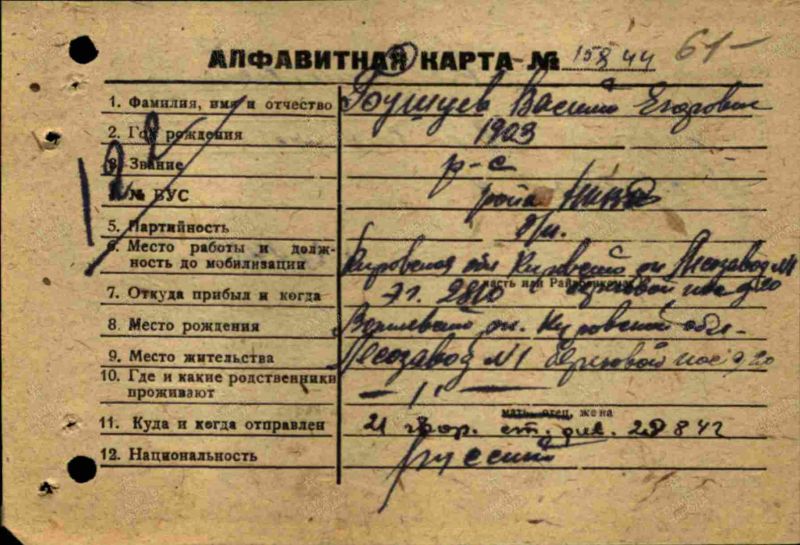 АЛФАВИТНАЯ КАРТА № 15844 61-
1. Фамилия, имя и отчество Василий Егорович
2. Год рождения 1903
3. Звание р-с
4. № ВУС
5. Партийность б/п.
6. Место работы и долж-
ность до мобилизации Кировская обл Кировский он. Лесозавод №1
часть или
7. Откуда прибыл и когда д 20
8. Место рождения он. Кировской обл-
9. Место жительства Лесозавод №1 березовой пос д 20
10. Где и какие родственники
проживают — 1, —
мать, отец, жена
11. Куда и когда отправлен 21 ст. див. 28 8 42
12. Национальность русский